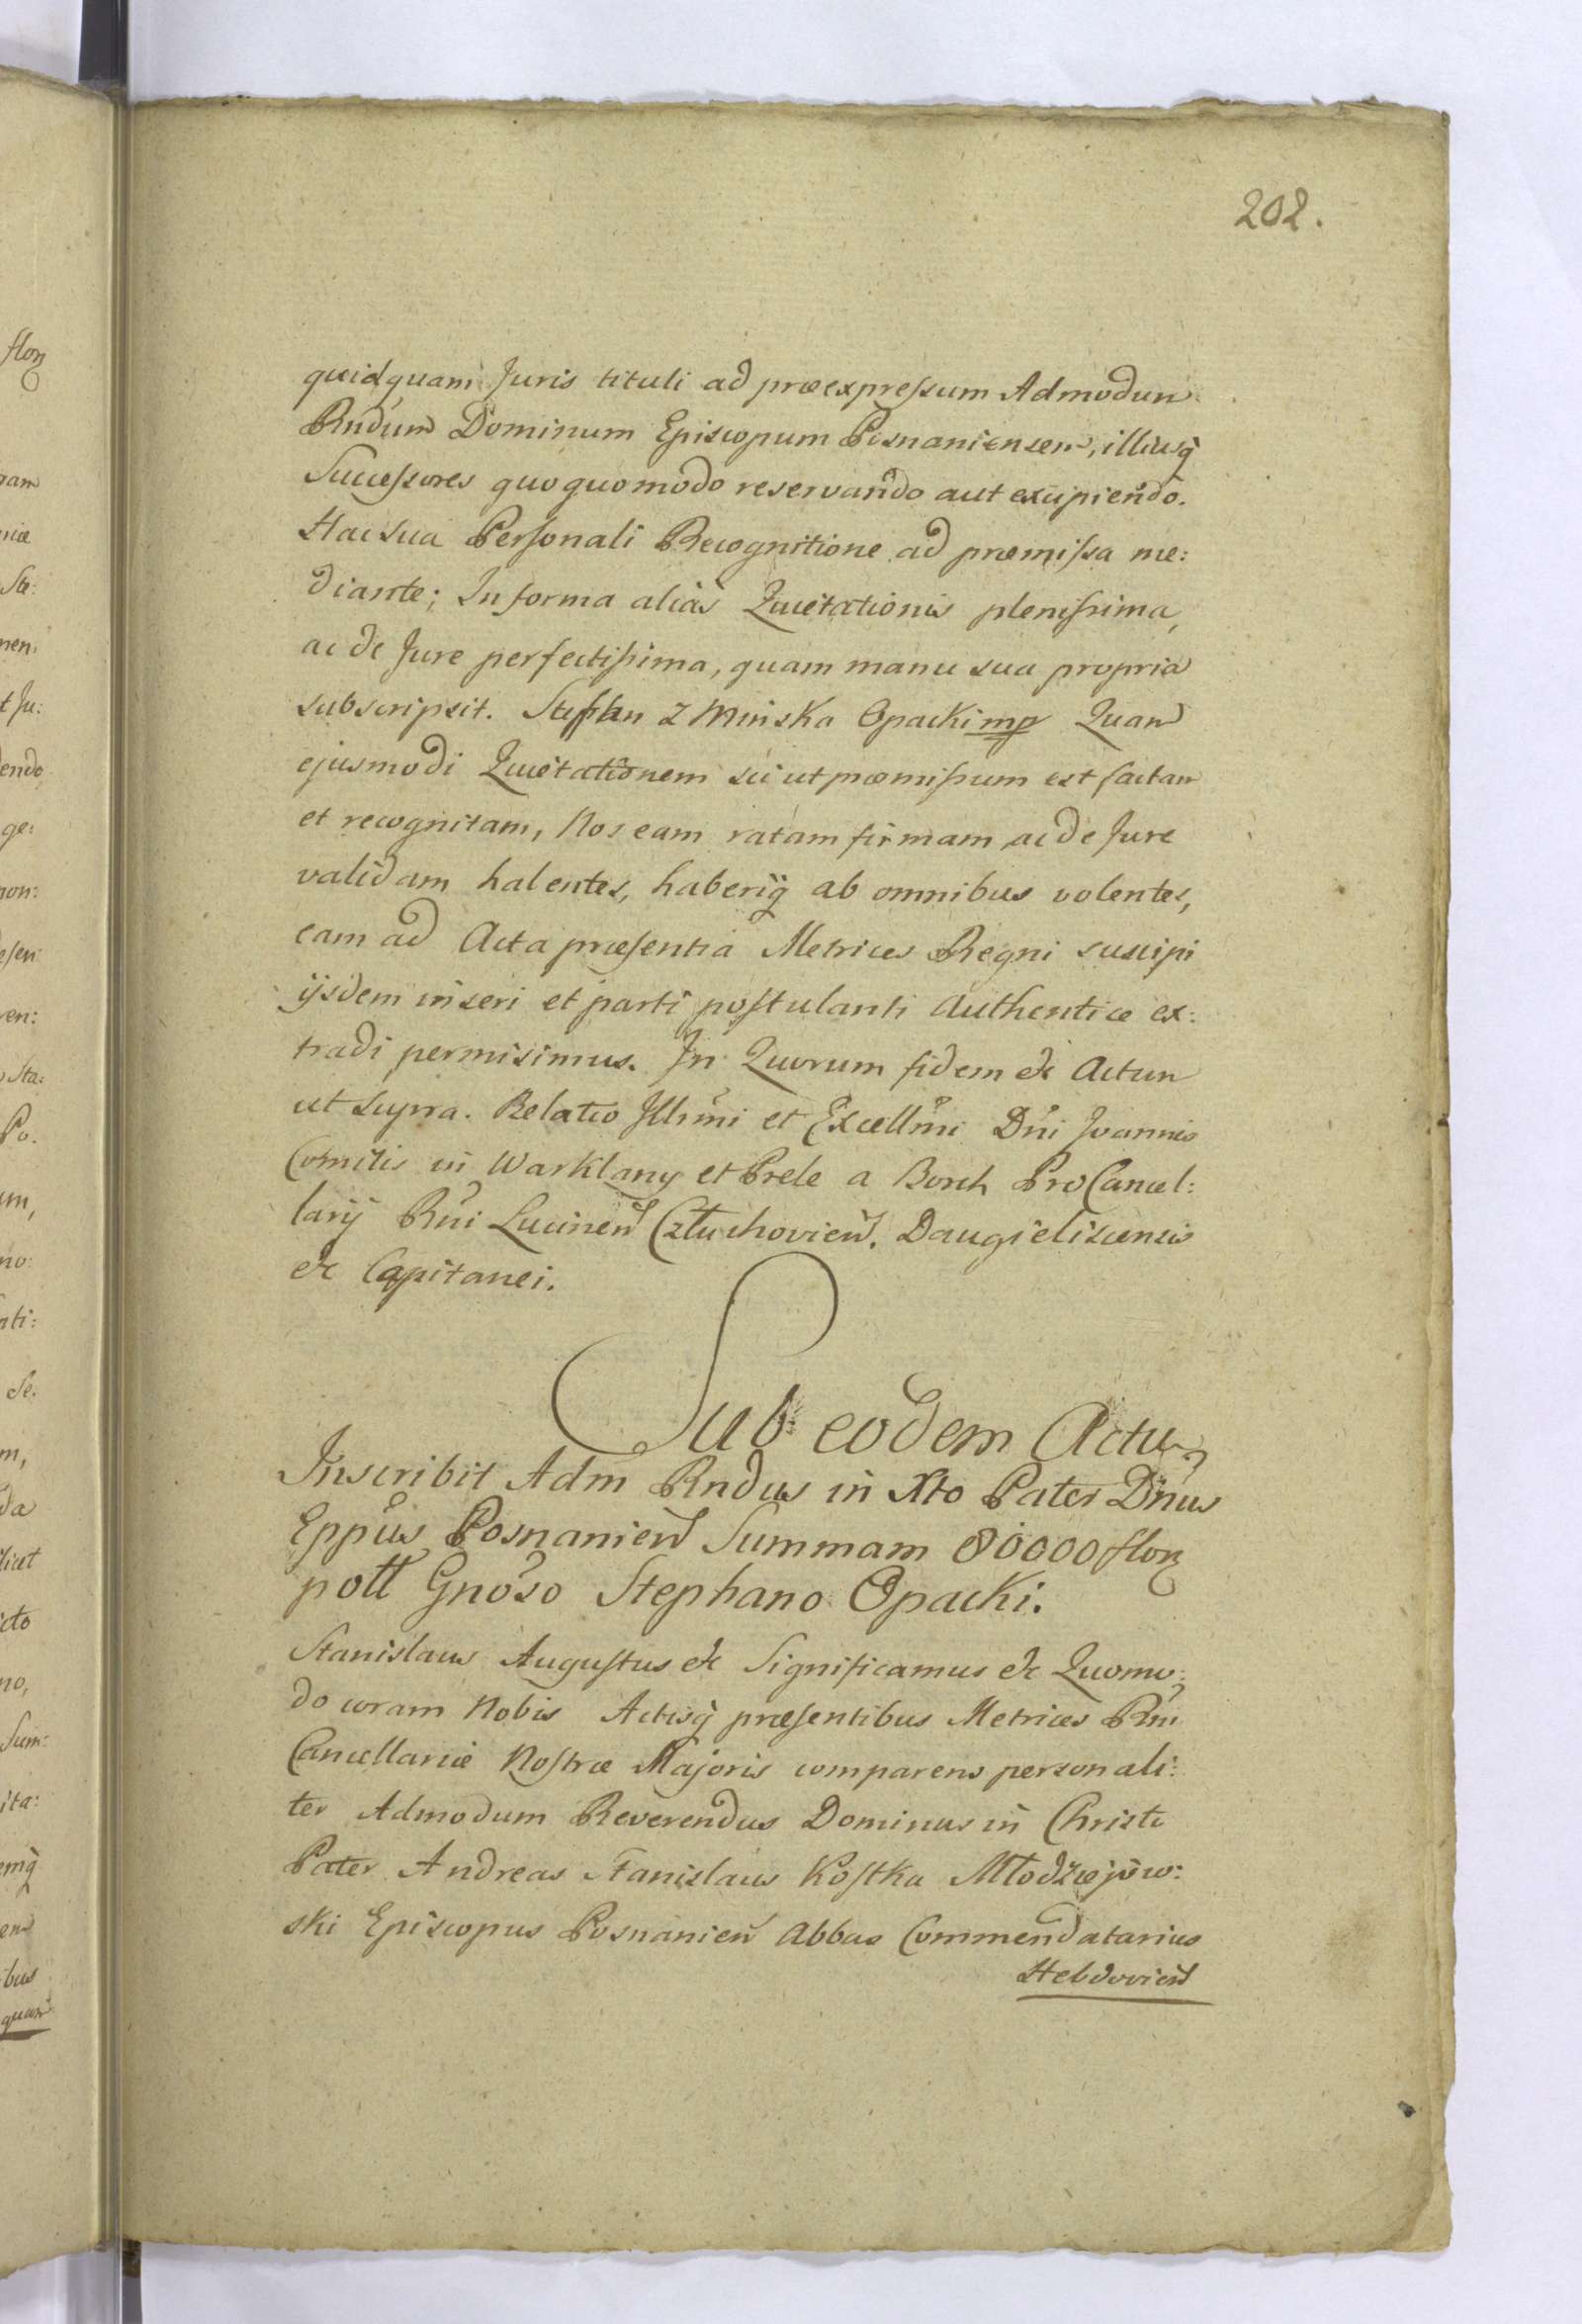 202.
quidquam Juris tituli ad præexpreſsum Admodum
Rndum Dominum Episcopum Posnaniensem, illiusq̃
Succeſsores quoquomodo reservando aut excipiendo.
Hac sua Perſonali Recognitione ad præmiſsa me:
diante; In forma alias Quietationis pleniſsima,
ac de Jure perfectiſsima, quam manu sua propria
subscripsit. Stefan z Minska Opacki mp Quam
ejusmodi Quietationem sic ut præmiſsum est factam
et recognitam, Nos eam ratam firmam ac de Jure
validam habentes, haberiq̃ ab omnibus volentes,
eam ad Acta præſentia Metrices Regni suscipi
ijsdem inseri et parti poſtulanti Authentice ex:
tradi permisimus. In Quorum fidem &c Actum
ut supra. Relatio Illmi et Excellmi Dni Joannis
Comitis in Warklany et Prele a Borch ProCancel:
larij Rni Lucinen Człuchovien. Daugieliscensis
&c Capitanei.
Sub eodem Actu
Inscribit Adm Rndus in Xto Pater Dnus
Eppus Posnanien Summam 80000 flor
poll Gnoso Stephano Opacki.
Stanislaus Auguſtus &c Significamus &c Quomo:
do coram Nobis Actisq̃ præſentibus Metrices Rni
Cancellariæ Noſtræ Majoris comparens personali:
ter Admodum Reverendus Dominus in Christo
Pater Andreas Stanislaus Koſtka Młodziejow:
ski Episcopus Posnanien Abbas Commendatarius
Hebdovien